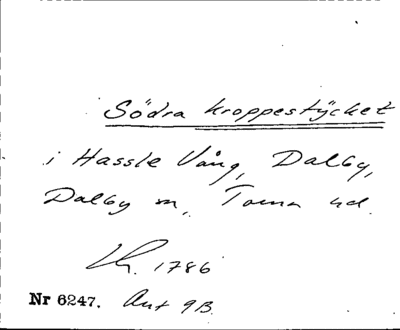 Södra kroppestycket
i Hassle Vång, Dalby,
Dalby sn, Torna hd.
Lh. 1786
Nr 6247. Akt 9B.